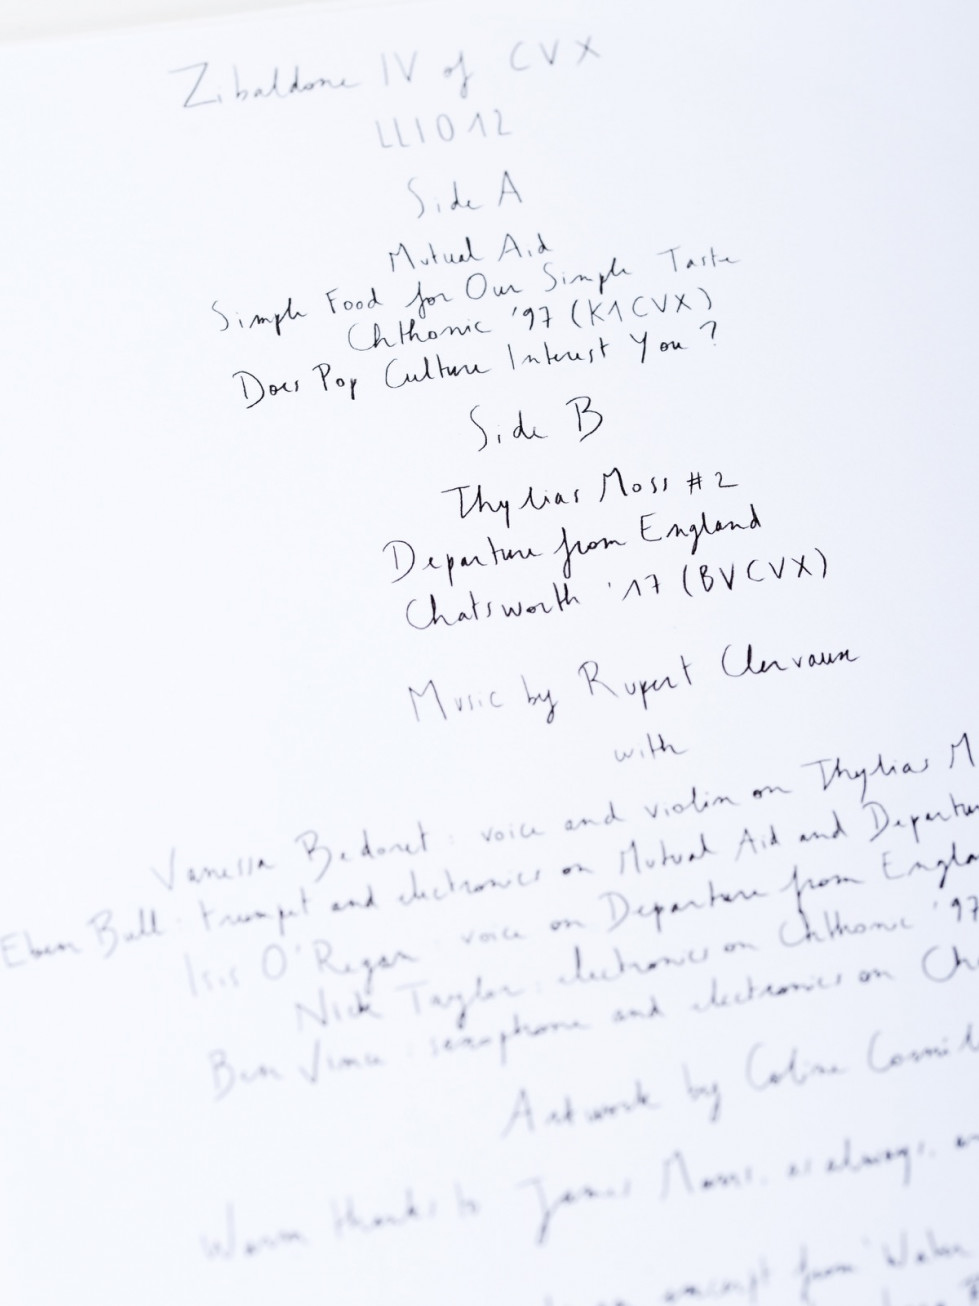 Zibaldone IV of CVX
LLI012
Side A
Mutual Aid
Simple Food for Our Simple Taste
Chthonic '97 (K1CVX)
Does Pop Culture Interest You?
Side B
Thylias Moss #2
Departure from England
Chatsworth '17 (BVCVX)
Music by Rupert Clervaux
with
Vanessa Bedoret: voice and violin on Thylias M
Eben Bull: trumpet and electronics on Mutual Aid and Departu
Isis O'Regan: voice on Departure from Engla
Nick Taylor: electronics on Chthonic '97
Ben Vince: saxophone and electronics on Ch
Artwork by Coline
Warm thanks to James as always,
excerpt from